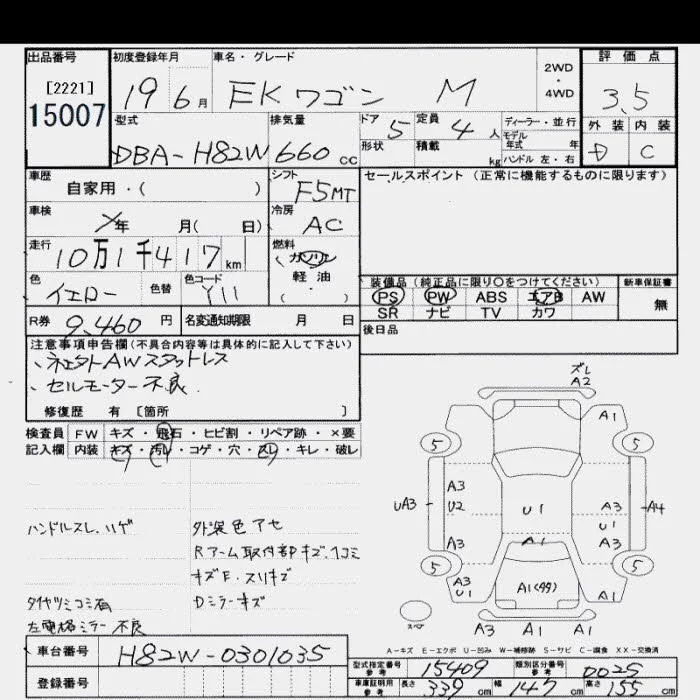 出品番号
[2221]
15007
初度登録年月
19年 6月
車名・グレード
EKワゴン M
2WD
・
4WD
評価点
3.5
外装 内装
D C
型式
DBA-H82W
排気量
660 cc
ドア 5
形状
定員 4 人
積載 kg
ディーラー・並行
モデル年式 年
ハンドル 左・右
車歴
自家用・( )
シフト
F5MT
セールスポイント (正常に機能するものに限ります)
車検
年 月( 日)
冷房
AC
走行
10万1千417km
燃料
ガソリン
軽・油
( )
色
イエロー
色替
色コード
Y11
装備品 (純正品に限り○をつけてください)
PS PW ABS エアB AW
SR ナビ TV カワ
新車保証書
無
R券 9,460 円
名変通知期限 月 日
後日品
注意事項申告欄(不具合内容等は具体的に記入して下さい)
、AWスタットレス
、セルモーター不良
修復歴 有 [箇所 ]
検査員 FW キズ・飛石・ヒビ割・リペア跡・×要
記入欄 内装 キズ・汚レ・コゲ・穴・スレ・キレ・破レ
ハンドルスレ、ハゲ
外装色アセ
Rアーム取付部キズ、凹コミ
キズE・スリキズ
タイヤツミコミ有
Dミラーキズ
左電格ミラー不良
ズレ
A2
A1
5 5
A3
U2
UA3
U1
A3
U1
A4
A3
A1
A3
5 5
A3
U1
A1(タタ)
A1
スペ
A3 A1 A1
A-キズ E-エクボ U-凹み W-補修跡 S-サビ C-腐食 XX-交換済
車台番号 H82W-0301035
登録番号
型式指定番号 参考 15409
類別区分番号 参考 0025
車庫証明用 参考 長さ 339 cm 幅 147 cm 高さ 155 cm